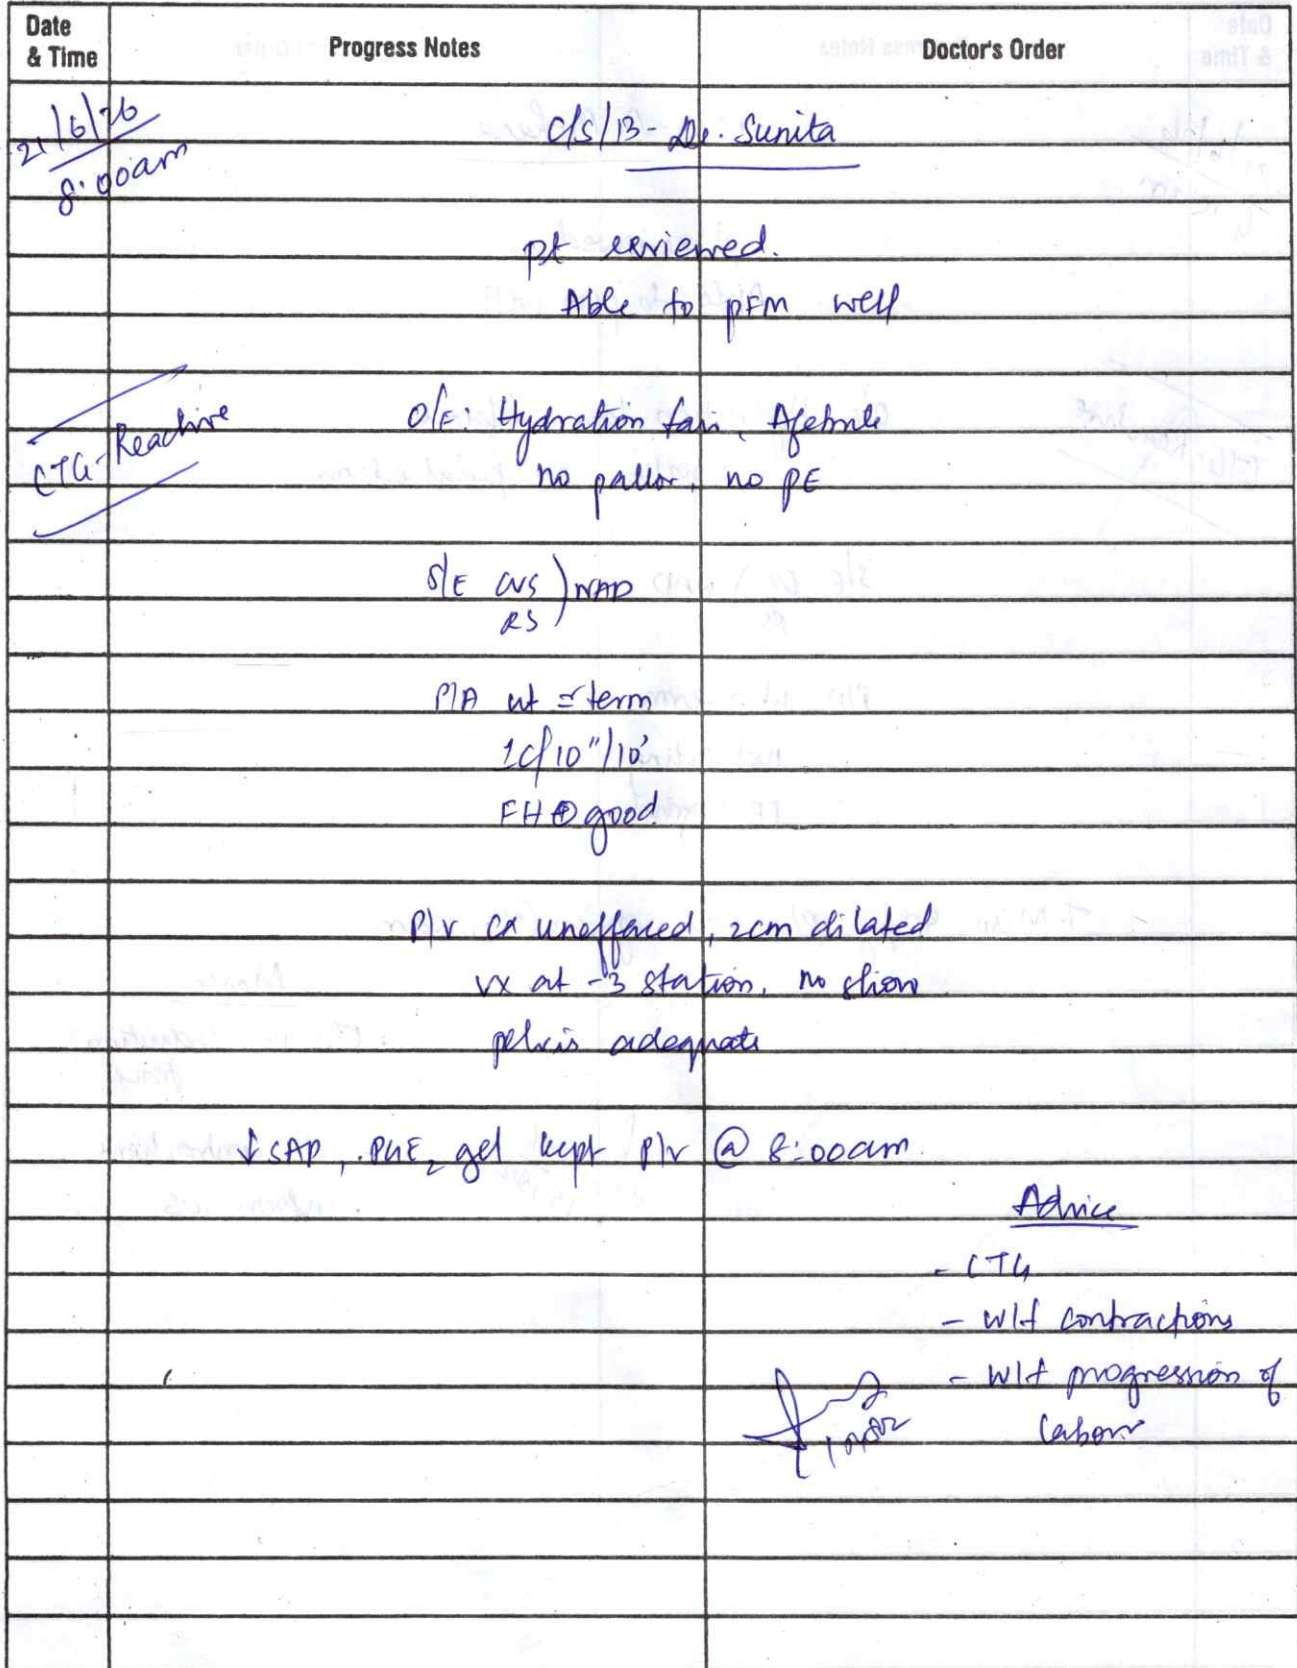 Date & Time
Progress Notes
Doctor's Order
21/6/26
8:00am
C/S/B - Dr. Sunita
pt reviewed.
Able to pFM well
CTG - Reactive
O/E: Hydration fair, Afebrile
no pallor, no PE
S/E CVS ) NAD
RS
P/A ut = term
1c/10"/10'
FH ⊕ good
P/v cx uneffaced, 2cm dilated
vx at -3 station, no show
pelvis adequate
↓ SAP, PGE2 gel kept P/v @ 8:00am
Advice
- CTG
- W/f contractions
- W/f progression of
labour